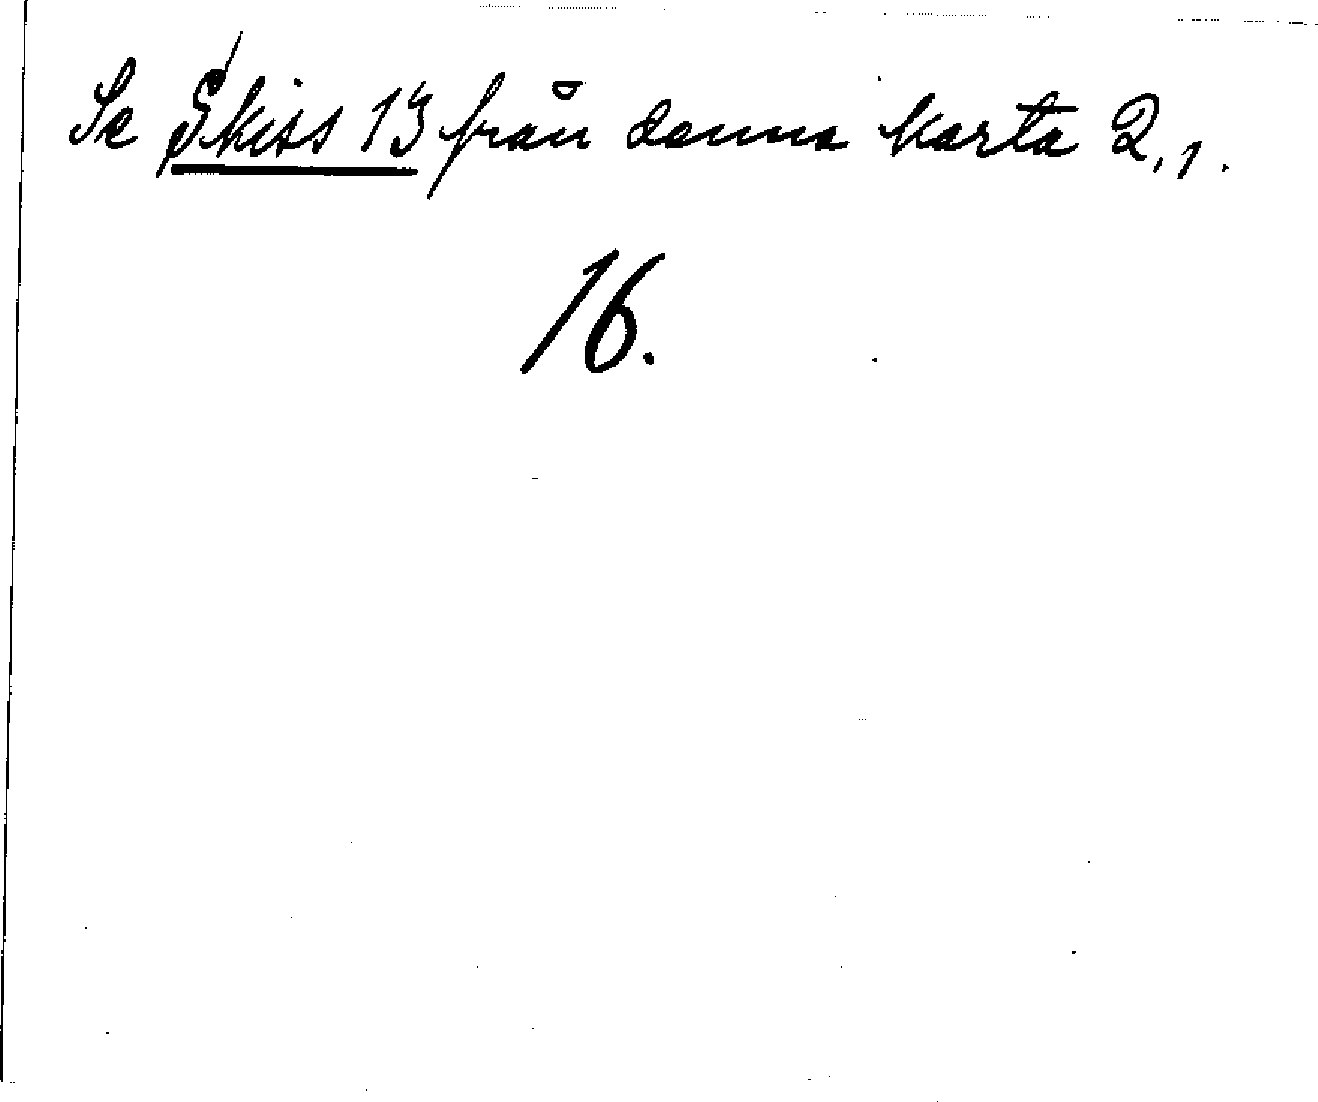 Se Skiss 13 från denna karta 2,1.
16.